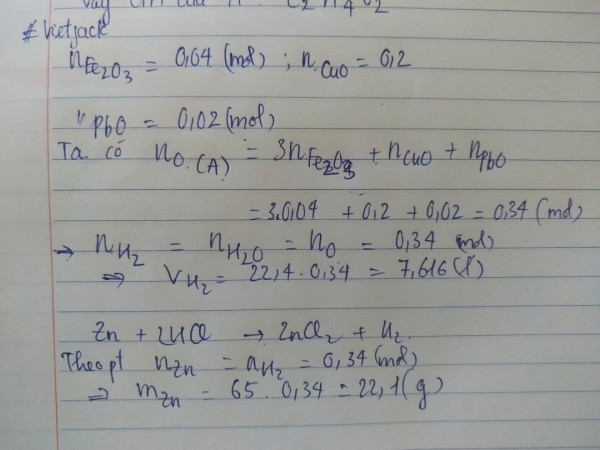 Vậy CTN của A: C2H4O2
# Vietjack
nFe2O3 = 0,04 (mol) ; nCuO = 0,2
"PbO = 0,02 (mol)
Ta có nO (A) = 3nFe2O3 + nCuO + nPbO
= 3.0,04 + 0,2 + 0,02 = 0,34 (mol)
→ nH2 = nH2O = nO = 0,34 mol)
⇒ VH2 = 22,4 . 0,34 = 7,616 (l)
Zn + 2HCl → ZnCl2 + H2.
Theo pt nZn = nH2 = 0,34 (mol)
⇒ mZn = 65 . 0,34 = 22,1 (g)